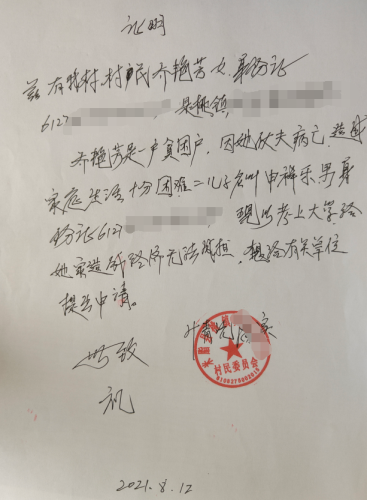 证明
兹有我村村民乔艳芳女身份证
6127 是 镇
乔艳芳是一户贫困户,因她丈夫病亡,造成
家庭生活十分困难二儿子名叫申祥乐男身
份证6127 现已考上大学,给
她家造成经济无法承担,想给有关单位
提出申请。
此致
礼
村民委员会
2021.8.12